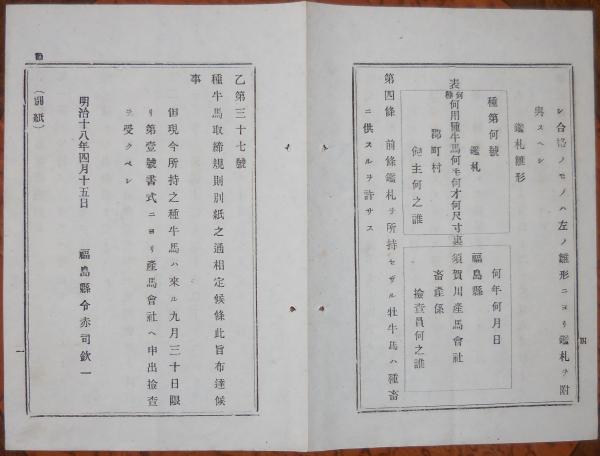 四
シ合格ノモノハ左ノ雛形ニヨリ鑑札ヲ附
與スヘシ
鑑札雛形
表
種第何號
鑑札
何種何用種牛馬何毛何才何尺寸
郡町村
飼主何之誰
裏
何年何月日
福島縣
須賀川産馬會社
畜産係
撿査員何之誰
第四條 前條鑑札ヲ所持セザル牡牛馬ハ種畜
ニ供スルヲ許サス
乙第三十七號
種牛馬取締規則別紙之通相定候條此旨布達候
事
但現今所持之種牛馬ハ來ル九月三十日限
リ第壹號書式ニヨリ産馬會社ヘ申出撿査
ヲ受クベシ
明治十八年四月十五日
福島縣令赤司欽一
（別紙）
一